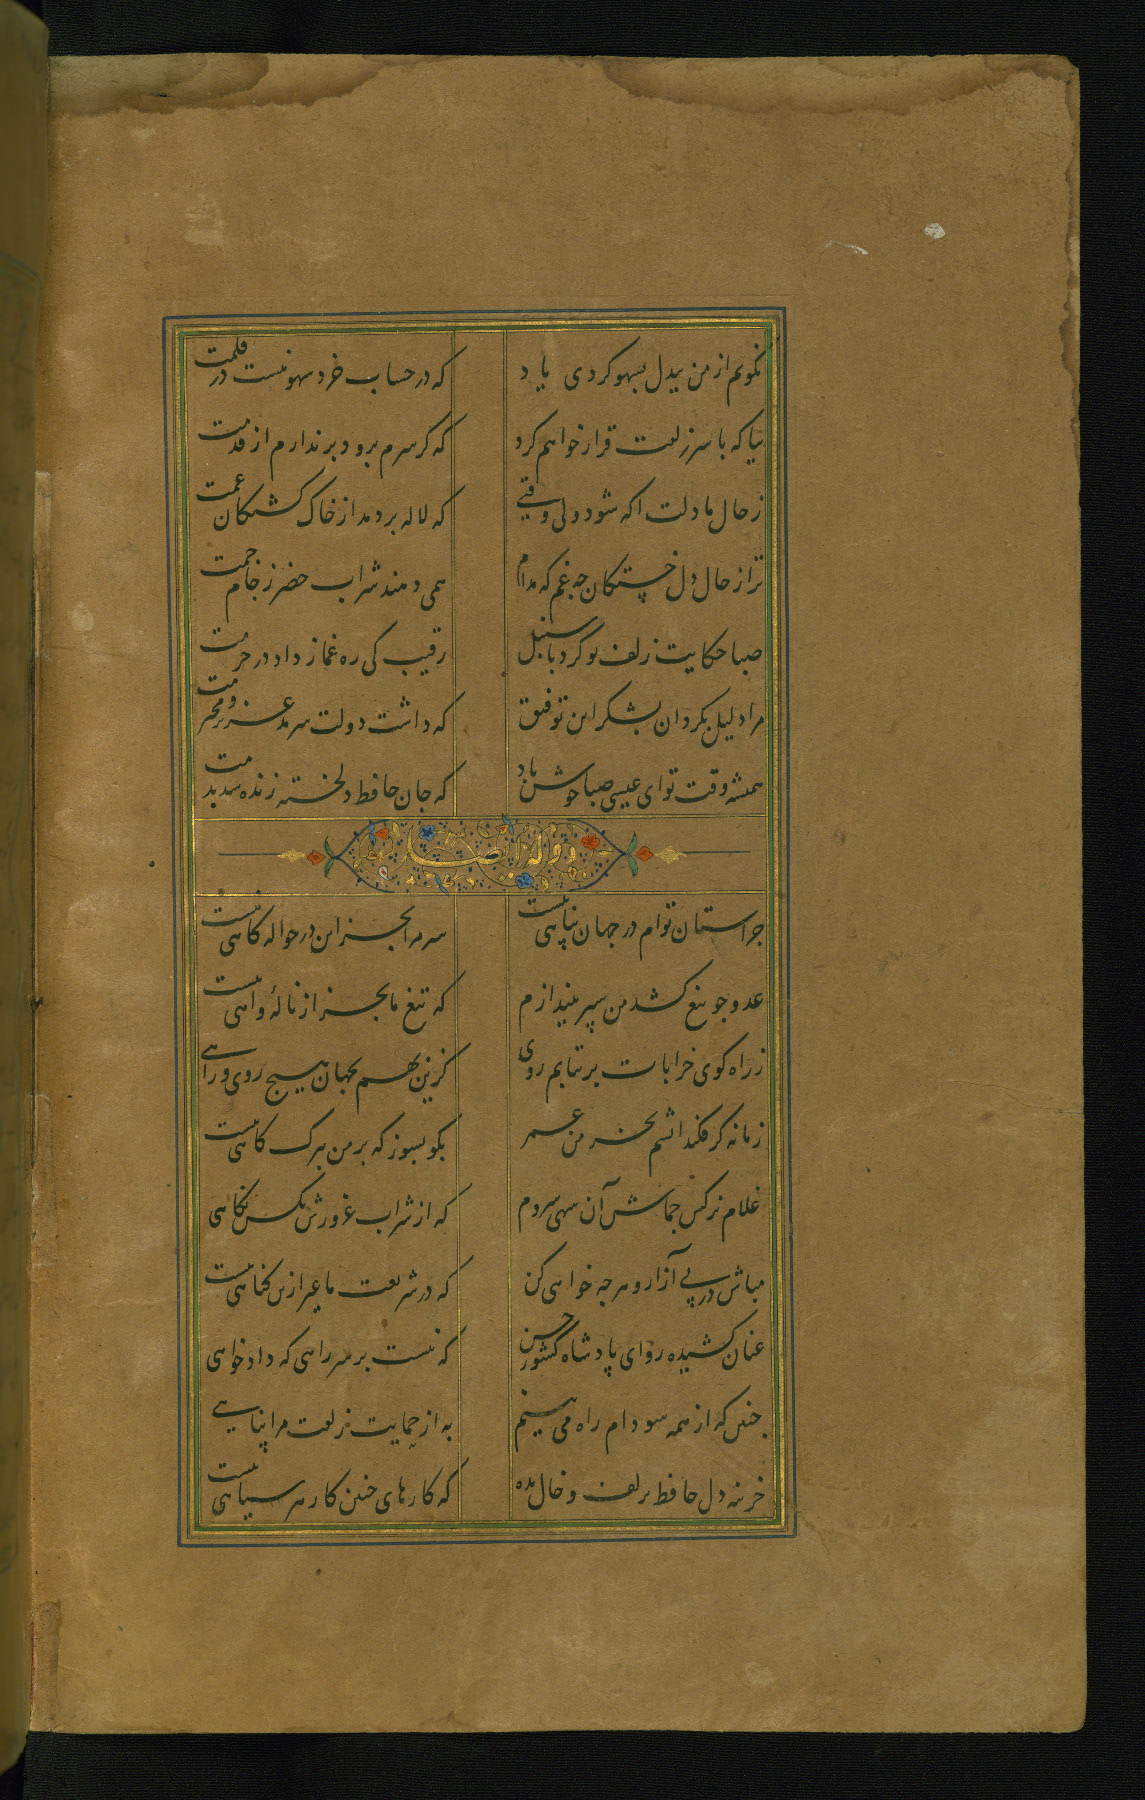 نکویم از من بیدل بسهو کردی یاد که در حساب خرد سهو نیست در قلمت
بیا که با سر زلفت قرار خواهم کرد که کر سرم برود بر ندارم از قدمت
ز حال ما دلت اکه شود ولی وقتی که لاله بردمد از خاک کشتکان غمت
ترا ز حال دل خستکان چه غم که مدام همی دهند شراب خضر ز جام جمت
صبا حکایت زلف تو کرد با سنبل رقیب کی ره غماز داد در حرمت
مرا دلیل مکردان بشکر این توفیق که داشت دولت سرمد عزیز و محترمت
همیشه وقت تو ای عیسی صبا خوش باد که جان حافظ دلخسته زنده شد بدمت
وله ایضا
جز استان توام در جهان پناهی نیست سر مرا بجز این در حواله کاهی نیست
عدو چو تیغ کشد من سپر بیندازم که تیغ ما بجز از نالهٔ و اهی نیست
ز راه کوی خرابات بر نتابم روی کزین بهم بجهان هیچ روی و راهی
زمانه کر فکند اتشم بخرمن عمر بکو بسوز که بر من ببرک کاهی نیست
غلام نرکس جماش آن سهی سروم که از شراب غرورش بکس نکاهی
مباش در پی آزار و هر چه خواهی کن که در شریعت ما غیر ازین کناهی نیست
عنان کشیده رو ای پادشاه کشور حسن که نیست بر سر راهی که داد خواهی
چنین که از همه سو دام راه می بینم به از حمایت زلفت مرا پناهی
خزینه دل حافظ بزلف و خال مده که کارهای چنین کار هر سیاهی نیست